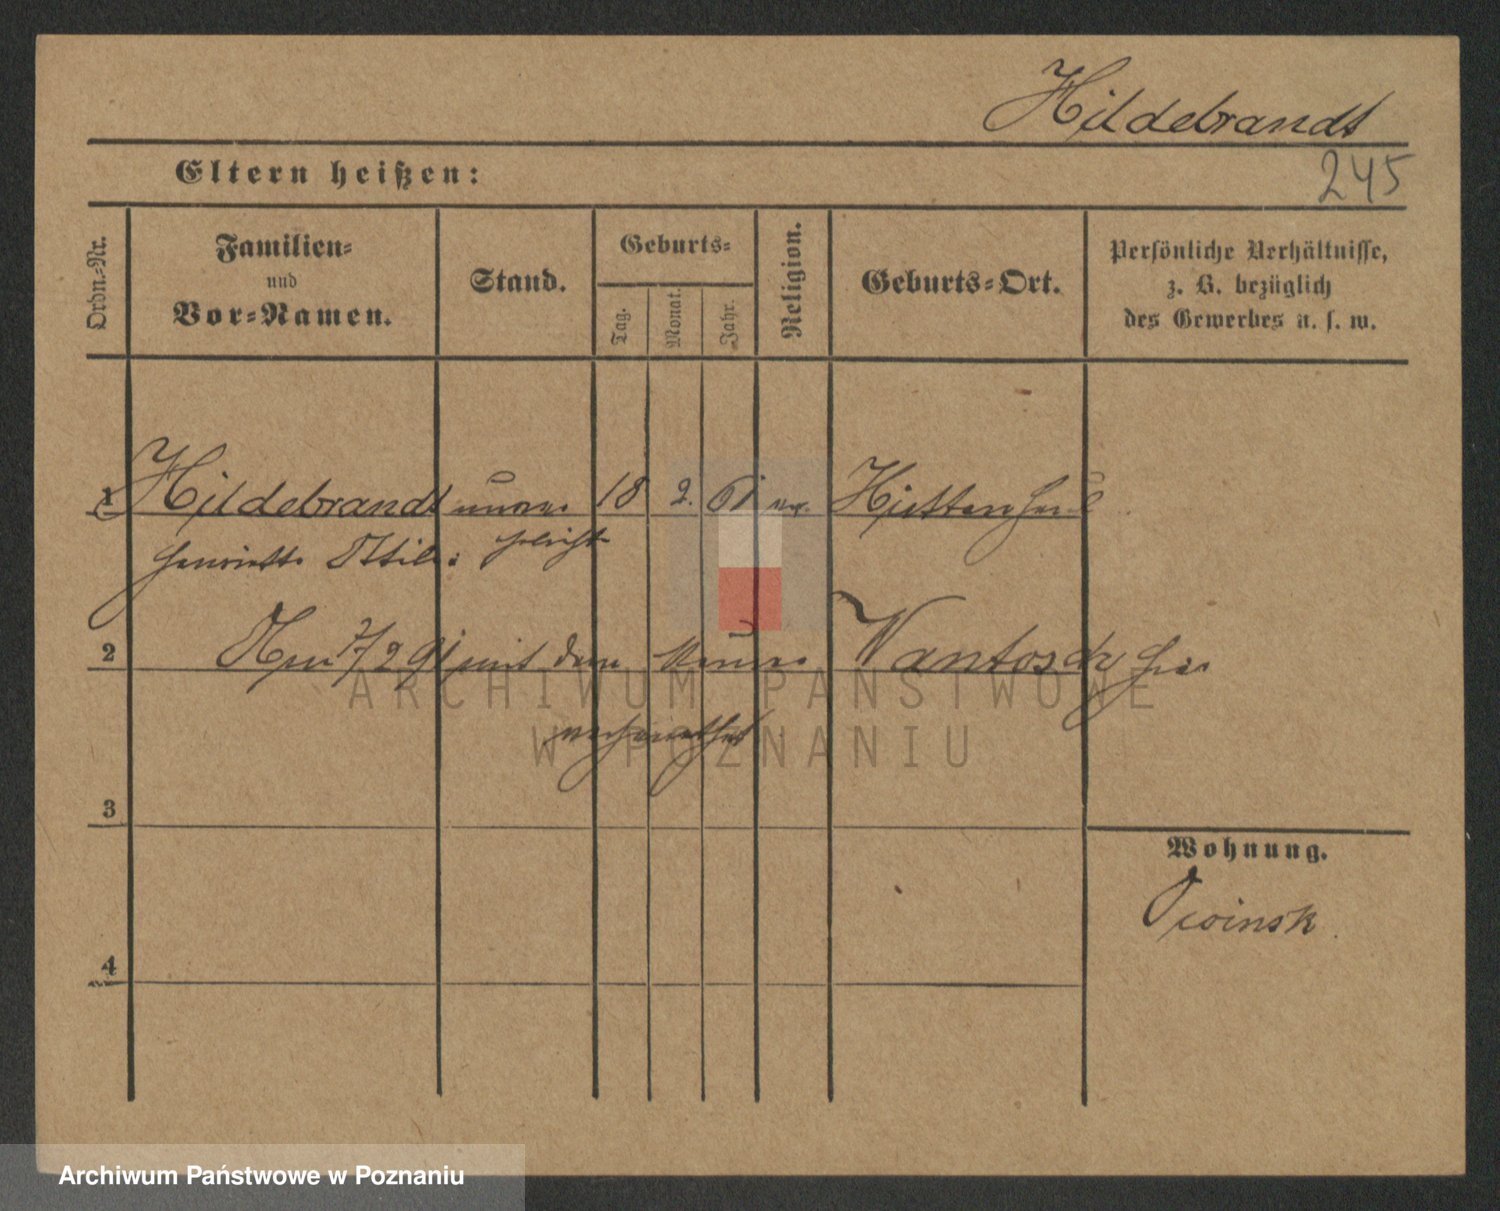 Hildebrandt
245
Eltern heißen:
Ordn.-Nr.
Familien-
und
Vor-Namen.
Stand.
Geburts-
Tag.
Monat.
Jahr.
Religion.
Geburts-Ort.
Persönliche Verhältnisse,
z. B. bezüglich
des Gewerbes u. s. w.
1 Hildebrandt unver 18 2. 61 ev.
Henriette Ottilie
2 Am 7/2 91 mit dem Maurer Wantosch hier
verheirathet
3
Wohnung.
Owinsk
4
ARCHIWUM PAŃSTWOWE
W POZNANIU
Archiwum Państwowe w Poznaniu